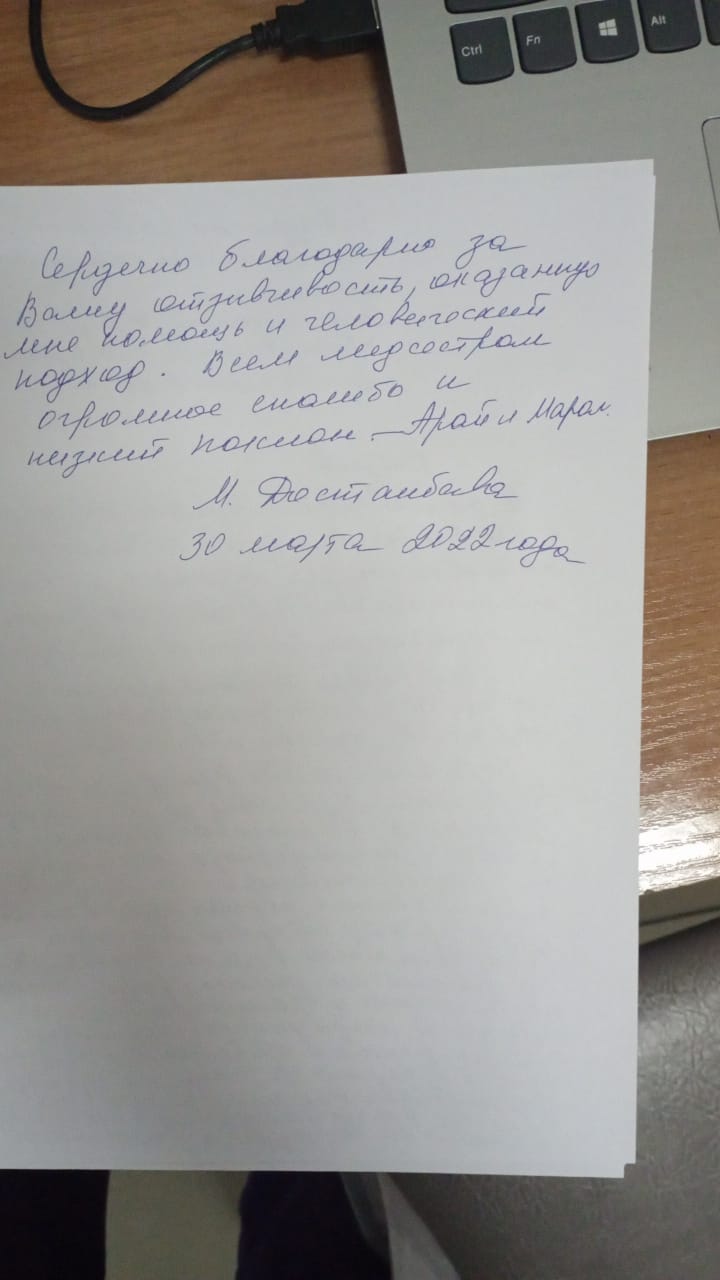 Ctrl Fn Alt
Сердечно благодарю за
Вашу отзывчивость, оказанную
мне помощь и человеческий
подход. Всем медсестрам
огромное спасибо и
низкий поклон. – Арай и Марал.
М. Достанбаева
30 марта 2022 года